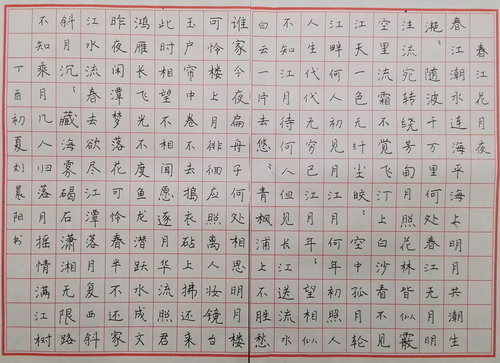 春江花月夜
春江潮水连海平海上明月共潮生
滟々随波千万里何处春江无月明
江流宛转绕芳甸月照花林皆似霰
空里流霜不觉飞汀上白沙看不见
江天一色无纤尘皎々空中孤月轮
江畔何人初见月江月何年初照人
人生代代无穷已江月年々望相似
不知江月待何人但见长江送流水
白云一片去悠々青枫浦上不胜愁
谁家今夜扁舟子何处相思明月楼
可怜楼上月徘徊应照离人妆镜台
玉户帘中卷不去捣衣砧上拂还来
此时相望不相闻愿逐月华流照君
鸿雁长飞光不度鱼龙潜跃水成文
昨夜闲潭梦落花可怜春半不还家
江水流春去欲尽江潭落月复西斜
斜月沉々藏海雾碣石潇湘无限路
不知乘月几人归落月摇情满江树
丁酉初夏刘晨阳书